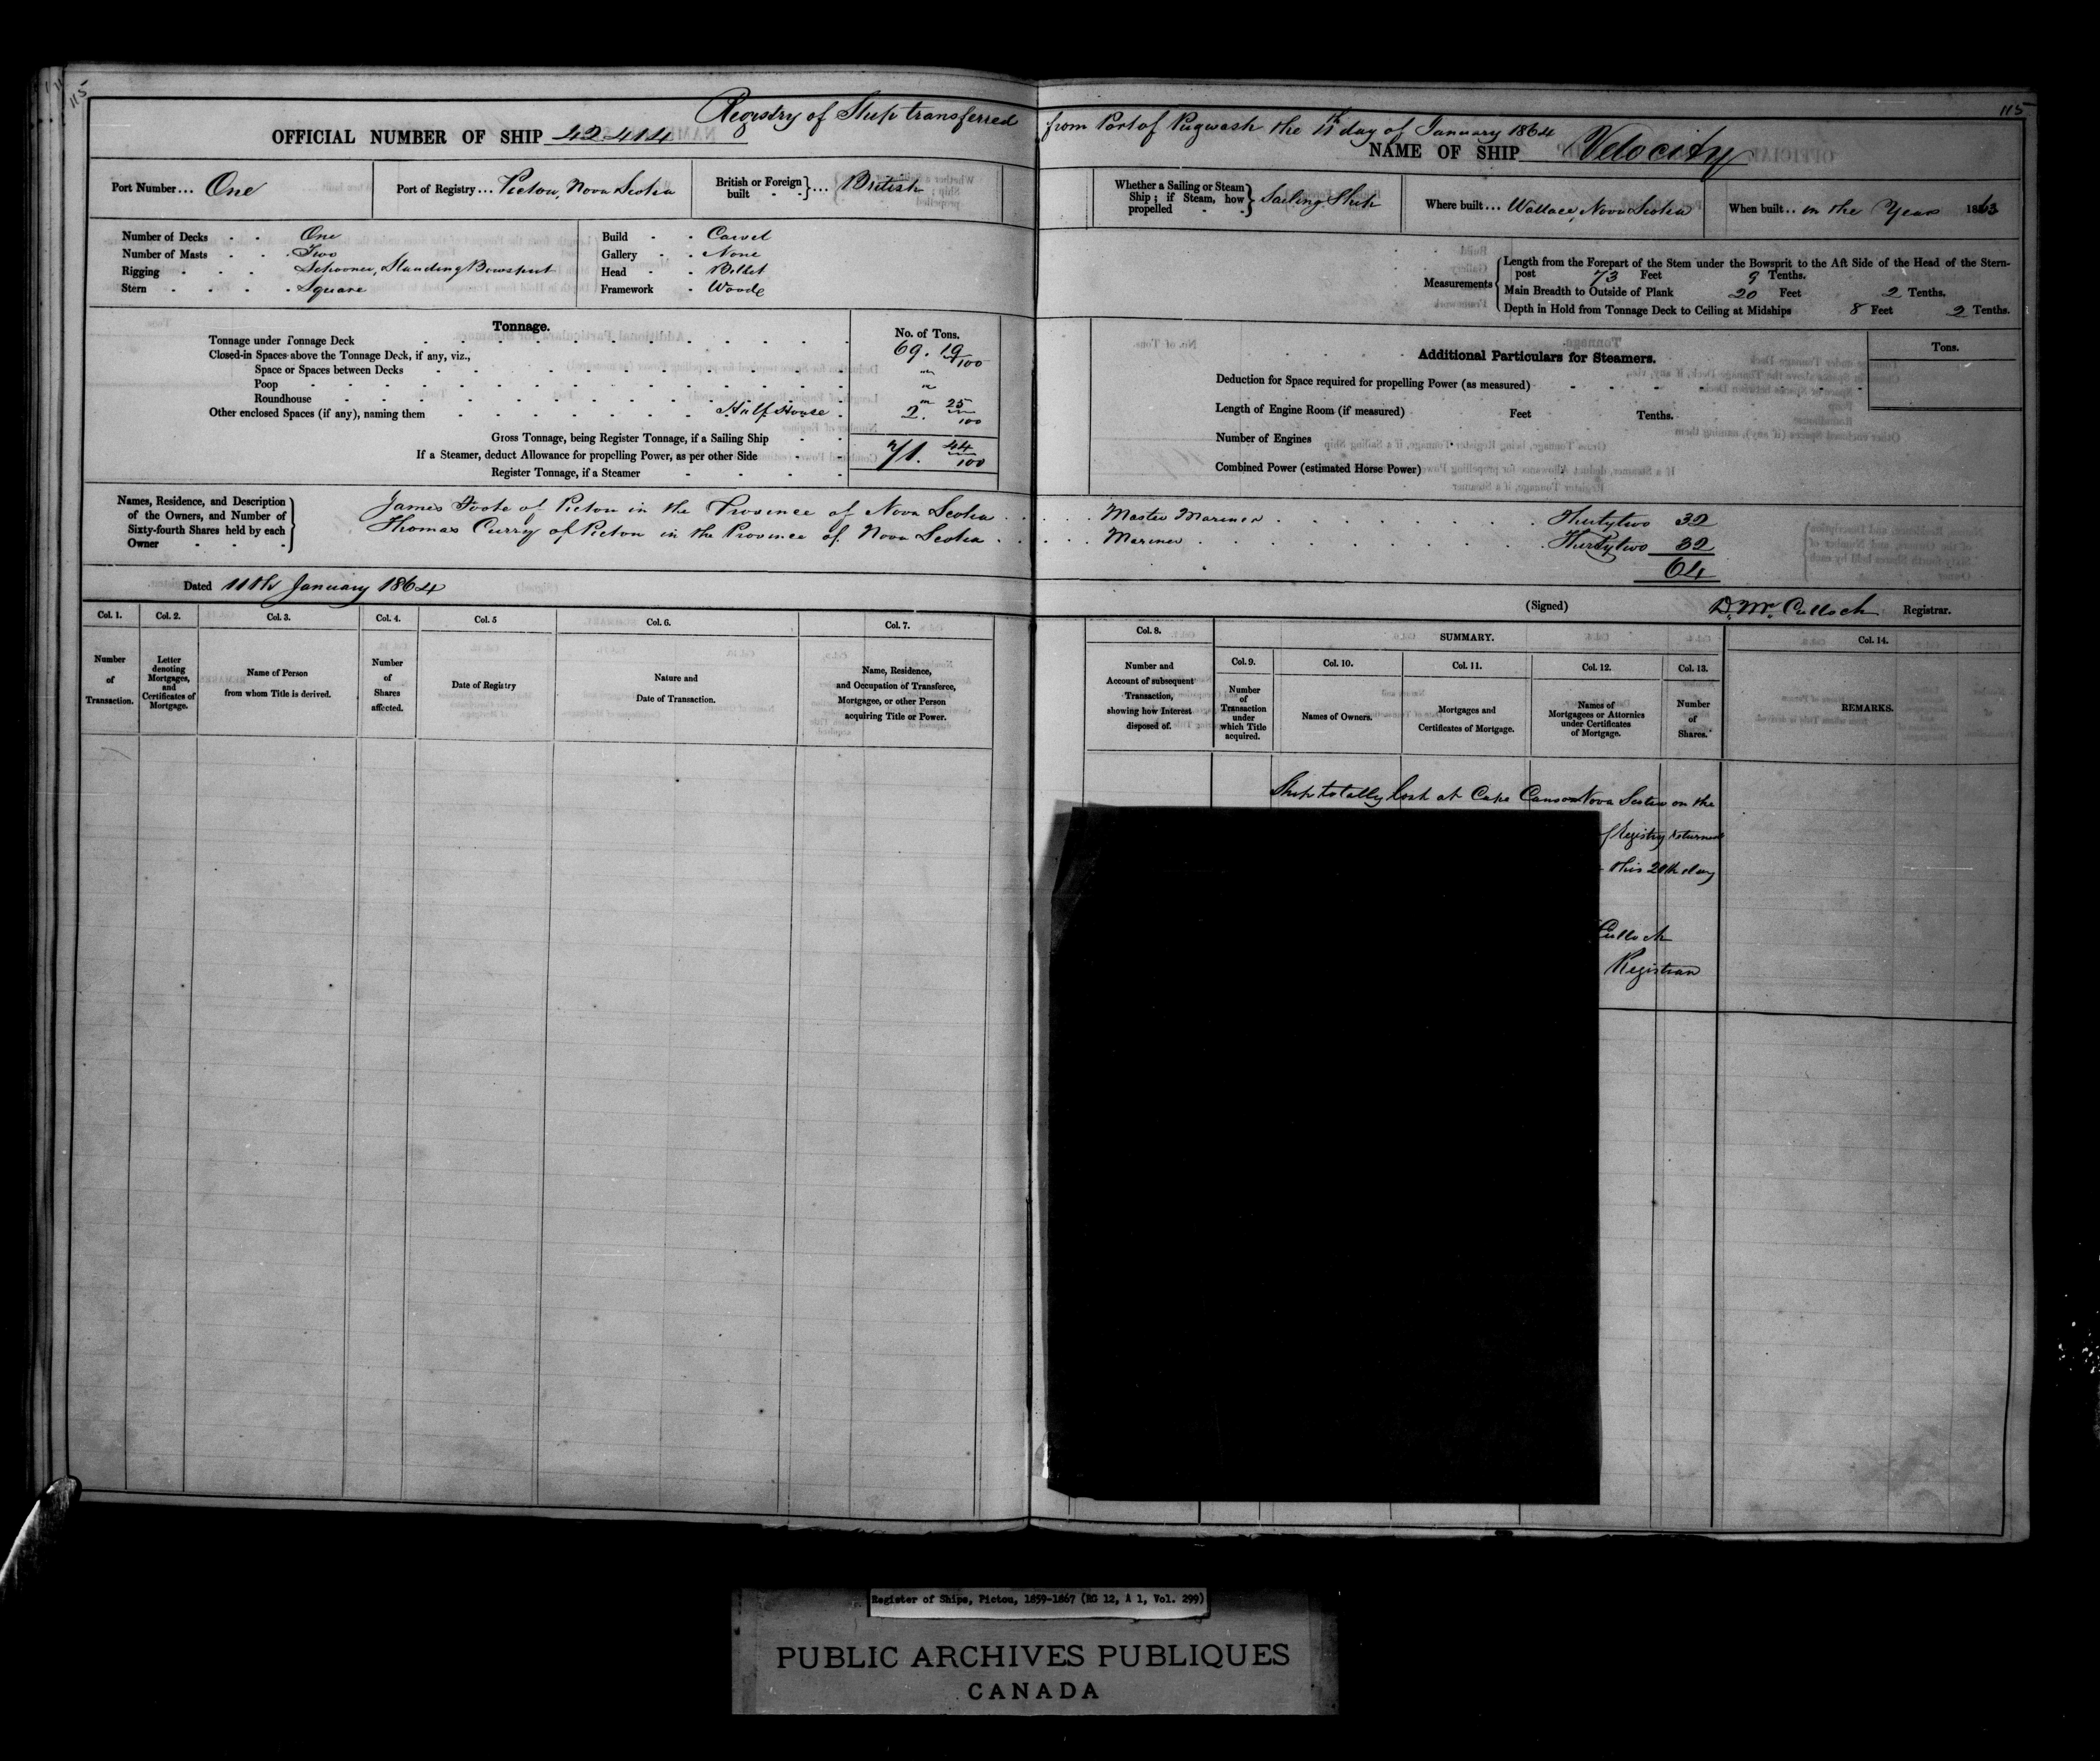 115
115
Registry of Ship transferred from Port of Pugwash the 11th day of January 1864
OFFICIAL NUMBER OF SHIP 42414
NAME OF SHIP Velocity
Port Number... One
Port of Registry... Pictou, Nova Scotia
British or Foreign built } ... British
Whether a Sailing or Steam Ship; if Steam, how propelled } Sailing Ship
Where built... Wallace, Nova Scotia
When built.. in the Year 1863
Number of Decks . . One
Number of Masts . . Two
Rigging . . Schooner, Standing Bowsprit
Stern . . . . Square
Build . . Carvel
Gallery . . None
Head . . Billet
Framework . Wood
Measurements
Length from the Forepart of the Stem under the Bowsprit to the Aft Side of the Head of the Stern-
post 73 Feet 9 Tenths.
Main Breadth to Outside of Plank 20 Feet 2 Tenths.
Depth in Hold from Tonnage Deck to Ceiling at Midships 8 Feet 2 Tenths.
Tonnage.
No. of Tons.
Tonnage under Tonnage Deck 69. 19/100
Closed-in Spaces above the Tonnage Deck, if any, viz.,
Space or Spaces between Decks "
Poop "
Roundhouse "
Other enclosed Spaces (if any), naming them Half House 2. 25/100
Gross Tonnage, being Register Tonnage, if a Sailing Ship 71. 44/100
If a Steamer, deduct Allowance for propelling Power, as per other Side
Register Tonnage, if a Steamer
Additional Particulars for Steamers.
Tons.
Deduction for Space required for propelling Power (as measured)
Length of Engine Room (if measured) Feet Tenths.
Number of Engines
Combined Power (estimated Horse Power)
Names, Residence, and Description
of the Owners, and Number of
Sixty-fourth Shares held by each
Owner
James Foote of Pictou in the Province of Nova Scotia . . . . . Master Mariner . . . . Thirtytwo 32
Thomas Curry of Pictou in the Province of Nova Scotia . . . . . Mariner . . . . Thirtytwo 32
64
Dated 11th January 1864
(Signed) D. Mc Culloch Registrar.
Col. 1.
Number
of
Transaction.
Col. 2.
Letter
denoting
Mortgages,
and
Certificates of
Mortgage.
Col. 3.
Name of Person
from whom Title is derived.
Col. 4.
Number
of
Shares
affected.
Col. 5
Date of Registry
Col. 6.
Nature and
Date of Transaction.
Col. 7.
Name, Residence,
and Occupation of Transferee,
Mortgagee, or other Person
acquiring Title or Power.
Col. 8.
Number and
Account of subsequent
Transaction,
showing how Interest
disposed of.
SUMMARY.
Col. 9.
Number
of
Transaction
under
which Title
acquired.
Col. 10.
Names of Owners.
Col. 11.
Mortgages and
Certificates of Mortgage.
Col. 12.
Names of
Mortgagees or Attornies
under Certificates
of Mortgage.
Col. 13.
Number
of
Shares.
Col. 14.
REMARKS.
Ship totally lost at Cape Canso Nova Scotia on the
of Registry returned
this 28th day
Culloch
Registrar
Register of Ships, Pictou, 1859-1867 (RG 12, A 1, Vol. 299)
PUBLIC ARCHIVES PUBLIQUES
CANADA